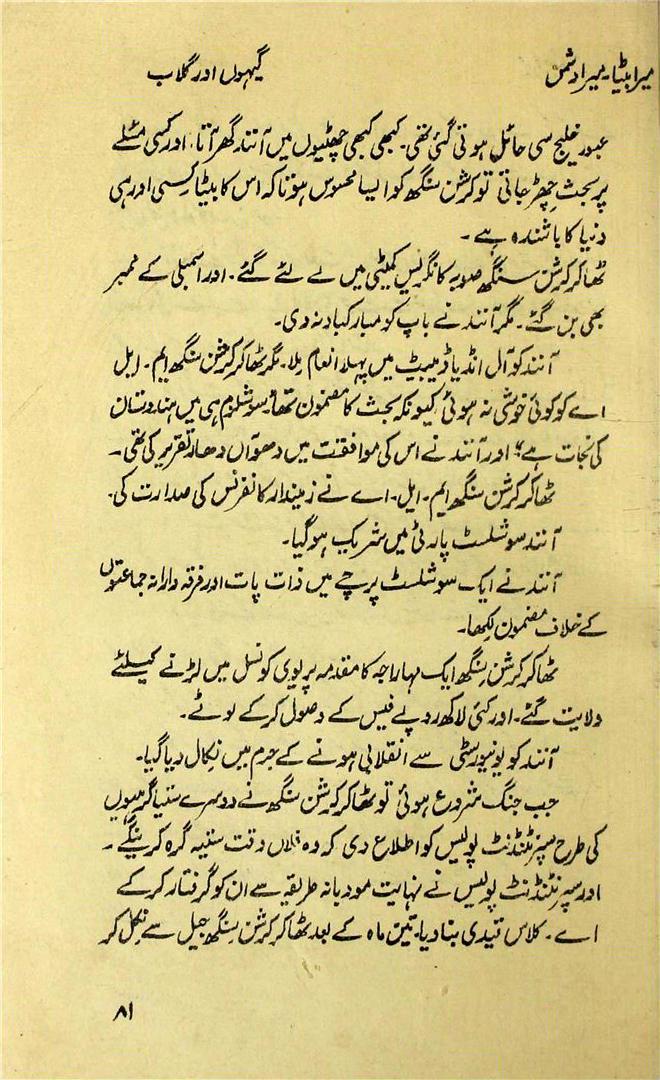 میرا بیٹا۔ میرا دشمن
گیہوں اور گلاب
عبور خلیج سی حائل ہوتی گئی تھی۔ کبھی کبھی چھٹیوں میں آنند گھر آتا، اور کسی مسئلے
پر بحث چھڑ جاتی تو کرشن سنگھ کو ایسا محسوس ہوتا کہ اس کا بیٹا کسی اور ہی
دنیا کا باشندہ ہے۔
ٹھاکر کرشن سنگھ صوبہ کانگریس کمیٹی میں لے لئے گئے۔ اور اسمبلی کے ممبر
بھی بن گئے۔ مگر آنند نے باپ کو مبارکباد نہ دی۔
آنند کو آل انڈیا ڈیبیٹ میں پہلا انعام ملا۔ مگر ٹھاکر کرشن سنگھ ایم۔ ایل
اے کو کوئی خوشی نہ ہوئی کیونکہ بحث کا مضمون تھا "سوشلزم ہی میں ہندوستان
کی نجات ہے" اور آنند نے اس کی موافقت میں دھوآں دھار تقریر کی تھی۔
ٹھاکر کرشن سنگھ ایم۔ ایل۔ اے نے زمیندار کانفرنس کی صدارت کی۔
آنند سوشلسٹ پارٹی میں شریک ہو گیا۔
آنند نے ایک سوشلسٹ پرچے میں ذات پات اور فرقہ وارانہ جماعتوں
کے خلاف مضمون لکھا۔
ٹھاکر کرشن سنگھ ایک مہاراجہ کا مقدمہ پریوی کونسل میں لڑنے کیلئے
ولایت گئے۔ اور کئی لاکھ روپے فیس کے وصول کر کے لوٹے۔
آنند کو یونیورسٹی سے انقلابی ہونے کے جرم میں نکال دیا گیا۔
جب جنگ شروع ہوئی تو ٹھاکر کرشن سنگھ نے دوسرے ستیاگرہیوں
کی طرح سپرنٹنڈنٹ پولیس کو اطلاع دی کہ وہ فلاں وقت ستیہ گرہ کرینگے۔
اور سپرنٹنڈنٹ پولیس نے نہایت مودبانہ طریقہ سے ان کو گرفتار کر کے
اے۔ کلاس قیدی بنا دیا۔ تین ماہ کے بعد ٹھاکر کرشن سنگھ جیل سے نکل کر
۸۱